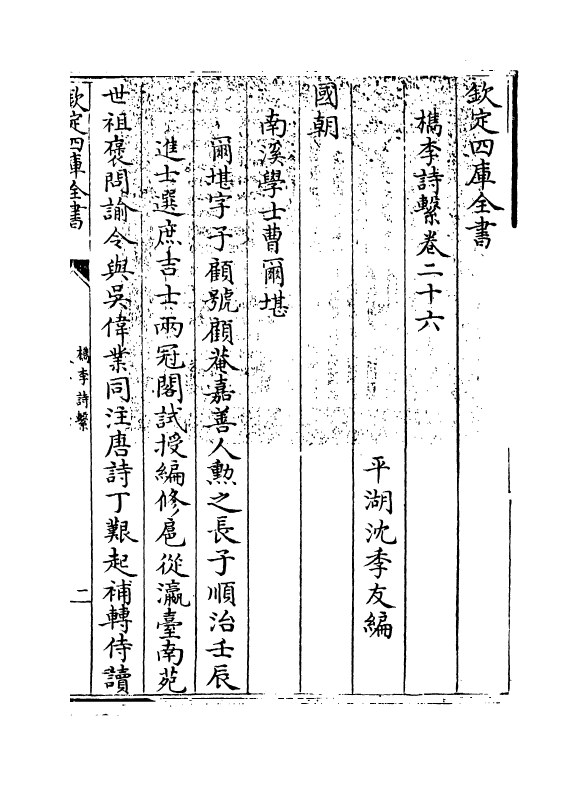 欽定四庫全書
檇李詩繫卷二十六
平湖沈季友編
國朝
南溪學士曹爾堪
爾堪字子顧號顧菴嘉善人勲之長子順治壬辰
進士選庶吉士兩冠閣試授編修扈從瀛臺南苑
世祖褒問諭令與吳偉業同注唐詩丁艱起補轉侍讀
欽定四庫全書
檇李詩繫
二